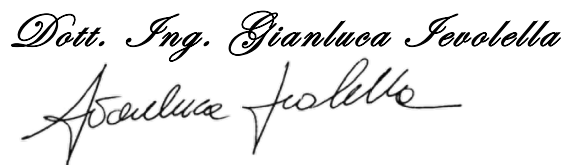 Dott. Ing. Gianluca Ievolella
Gianluca Ievolella